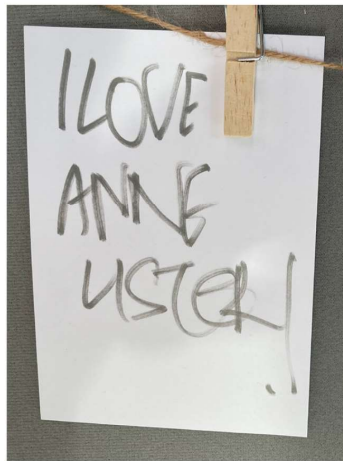 I LOVE
ANNE
LISTER!